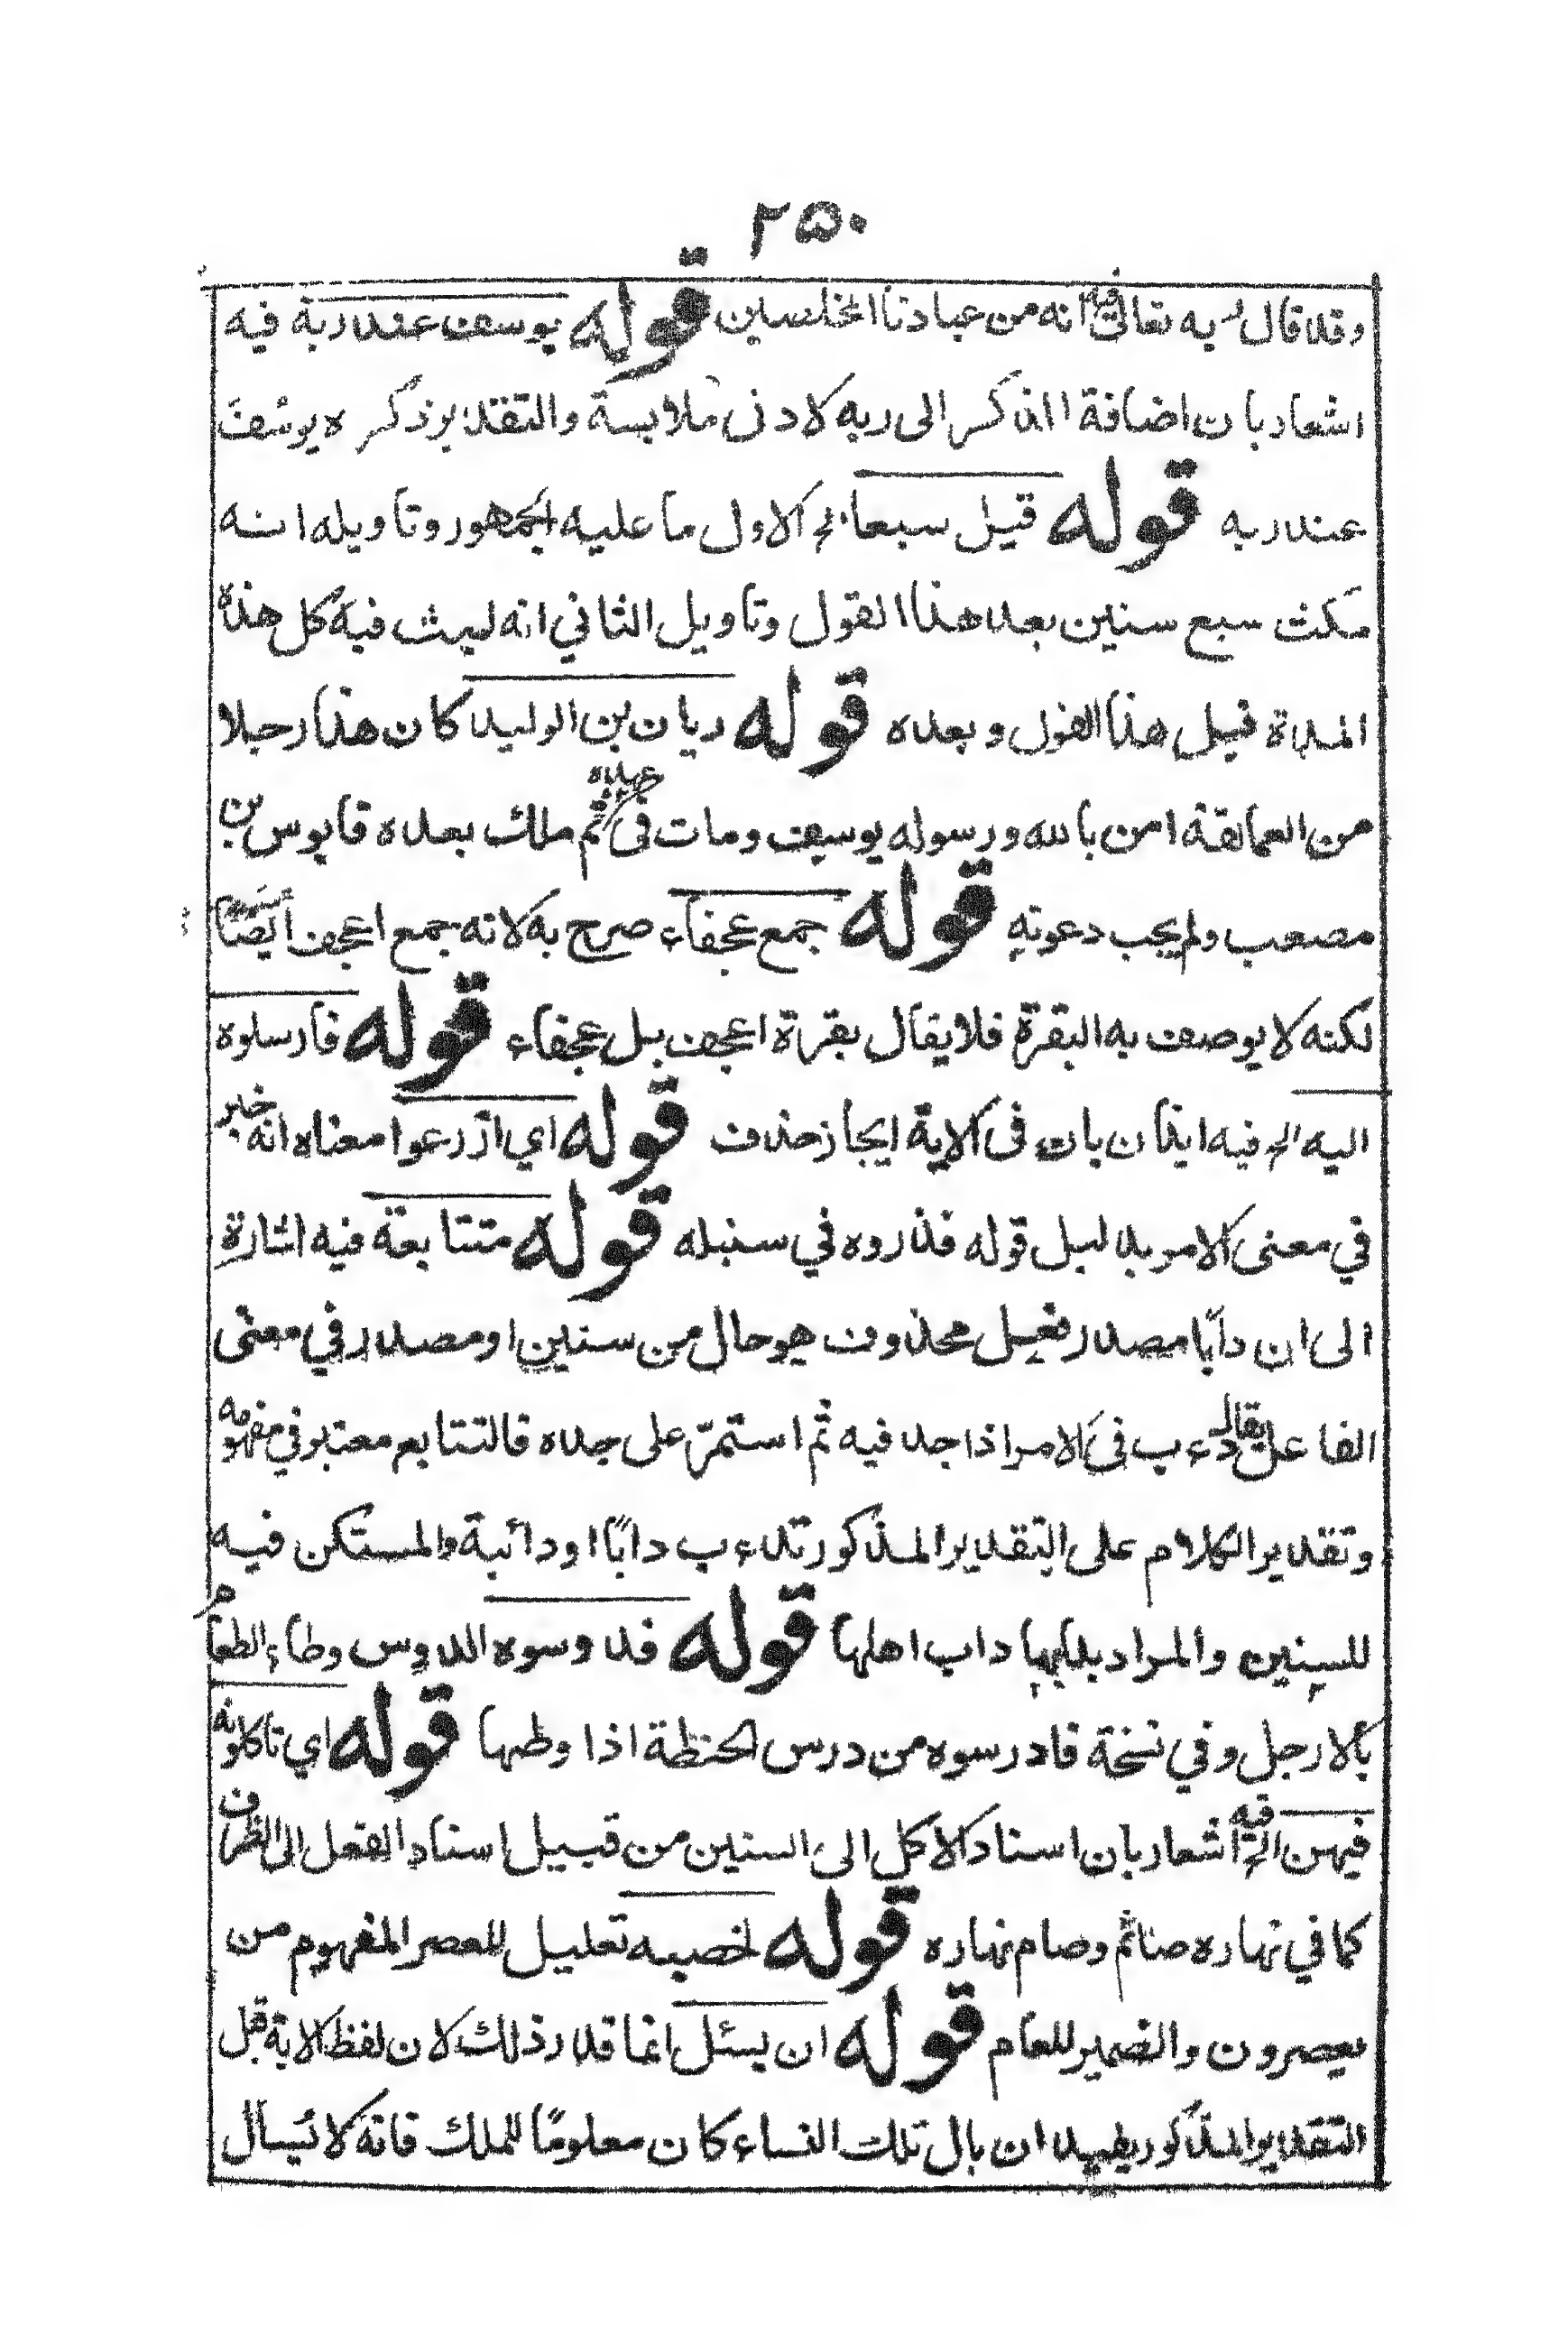 ٢٥٠
وقد قال ربه تعالى فيه انه من عبادنا المخلصين قوله يوسف عند ربه فيه
اشعار بان اضافة الذكر الى ربه لادنى ملابسة والتقدير ذكره يوسف
عند ربه قوله قيل سبعا الخ الاول ما عليه الجمهور وتاويله انه
مكث سبع سنين بعد هذا القول وتاويل الثاني انه لبث فيه كل هذه
المدة قبل هذا القول وبعده قوله ريان بن الوليد كان هذا رجلا
من العمالقة امن بالله ورسوله يوسف ومات في عهده ثم ملك بعده قابوس بن
مصعب ولم يجب دعوته قوله جمع عجفاء صرح به لانه جمع اعجف ايضا
لكنه لا يوصف به البقرة فلا يقال بقرة اعجف بل عجفاء قوله فارسلوه
اليه الخ فيه ايذان بان في الاية ايجاز حذف قوله اي ازرعوا معناه انه خبر
في معنى الامر بدليل قوله فذروه في سنبله قوله متتابعة فيه اشارة
الى ان دأبا مصدر فعل محذوف هو حال من سنين او مصدر في معنى
الفاعل يقال دءب في الامر اذا جد فيه ثم استمرّ على جده فالتتابع معتبر في مفهومه
وتقدير الكلام على التقدير المذكور تدءب دابًا او دائبة والمستكن فيه
للسنين والمراد بدابها داب اهلها قوله فدوسوه الدوس وطاء الطعام
بالارجل وفي نسخة فادرسوه من درس الحنطة اذا وطهها قوله اي تاكلونه
فيهن الخ فيه اشعار بان اسناد الاكل الى السنين من قبيل اسناد الفعل الى الظرف
كما في نهاره صائم وصام نهاره قوله لخصبه تعليل للعصر المفهوم من
يعصرون والضمير للعام قوله ان يسئل انما قدر ذلك لان لفظ الاية قبل
التقدير المذكور يفيد ان بال تلك النساء كان معلومًا للملك فانه لا يُسأل